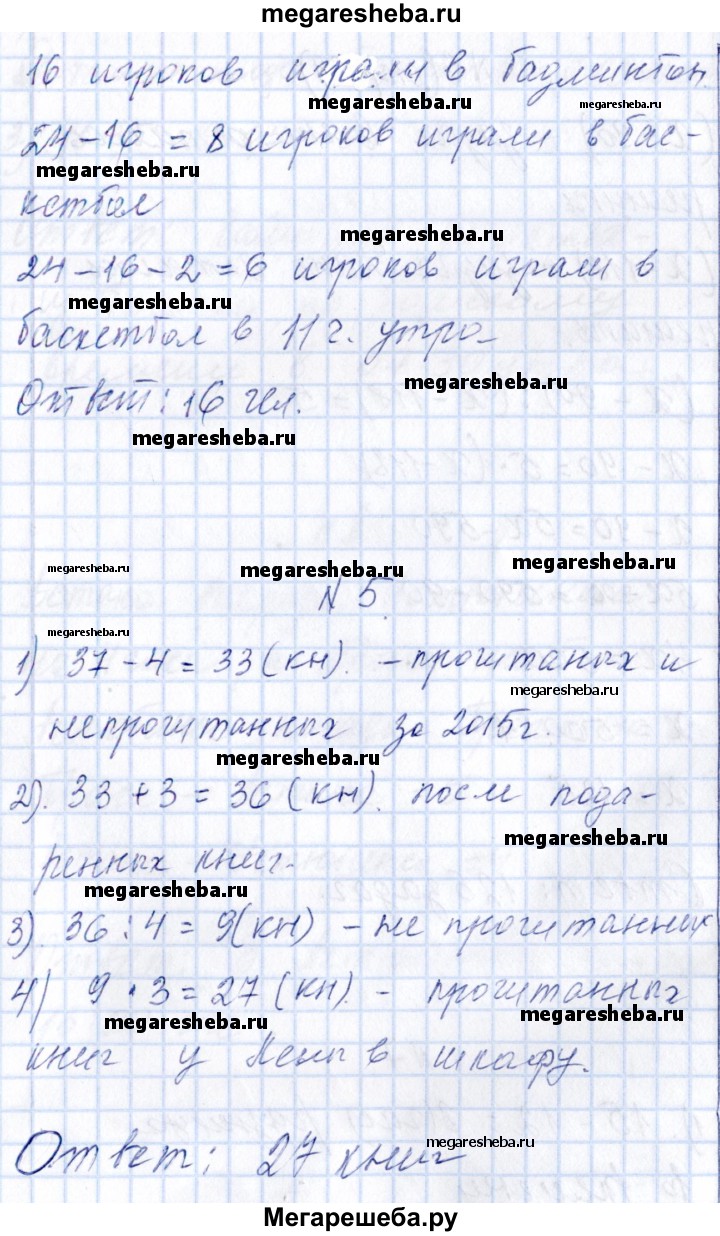 megaresheba.ru
16 игроков играли в бадминтон.
megaresheba.ru
megaresheba.ru
24-16 = 8 игроков играли в бас-
megaresheba.ru
кетбол
megaresheba.ru
24-16-2=6 игроков играли в
megaresheba.ru
баскетбол в 11 г. утро
megaresheba.ru
Ответ: 16 чел.
megaresheba.ru
megaresheba.ru
megaresheba.ru
megaresheba.ru
N 5.
megaresheba.ru
1) 37-4=33(кн). -прочитаных и
megaresheba.ru
непрочитанных за 2015г.
megaresheba.ru
2). 33+3=36(кн). после пода-
megaresheba.ru
ренных книг.
megaresheba.ru
3). 36:4=9(кн) - не прочитанных
4) 9·3=27(кн). - прочитанных
megaresheba.ru
megaresheba.ru
книг у Лены в шкафу.
Ответ: 27 книг
megaresheba.ru
Мегарешеба.ру